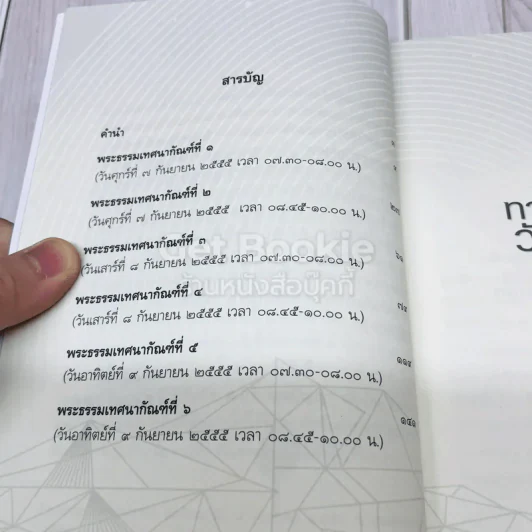 สารบัญ
คำนำ
พระธรรมเทศนากัณฑ์ที่ ๑
(วันศุกร์ที่ ๗ กันยายน ๒๕๕๕ เวลา ๐๗.๓๐-๐๘.๐๐ น.)
พระธรรมเทศนากัณฑ์ที่ ๒
(วันศุกร์ที่ ๗ กันยายน ๒๕๕๕ เวลา ๐๘.๔๕-๑๐.๐๐ น.)
พระธรรมเทศนากัณฑ์ที่ ๓
(วันเสาร์ที่ ๘ กันยายน ๒๕๕๕ เวลา ๐๗.๓๐-๐๘.๐๐ น.)
พระธรรมเทศนากัณฑ์ที่ ๔
(วันเสาร์ที่ ๘ กันยายน ๒๕๕๕ เวลา ๐๘.๔๕-๑๐.๐๐ น.) ๗๔
พระธรรมเทศนากัณฑ์ที่ ๕
(วันอาทิตย์ที่ ๙ กันยายน ๒๕๕๕ เวลา ๐๗.๓๐-๐๘.๐๐ น.)
พระธรรมเทศนากัณฑ์ที่ ๖
(วันอาทิตย์ที่ ๙ กันยายน ๒๕๕๕ เวลา ๐๘.๔๕-๑๐.๐๐ น.)
Get Bookie
ร้านหนังสือบุ๊คกี้